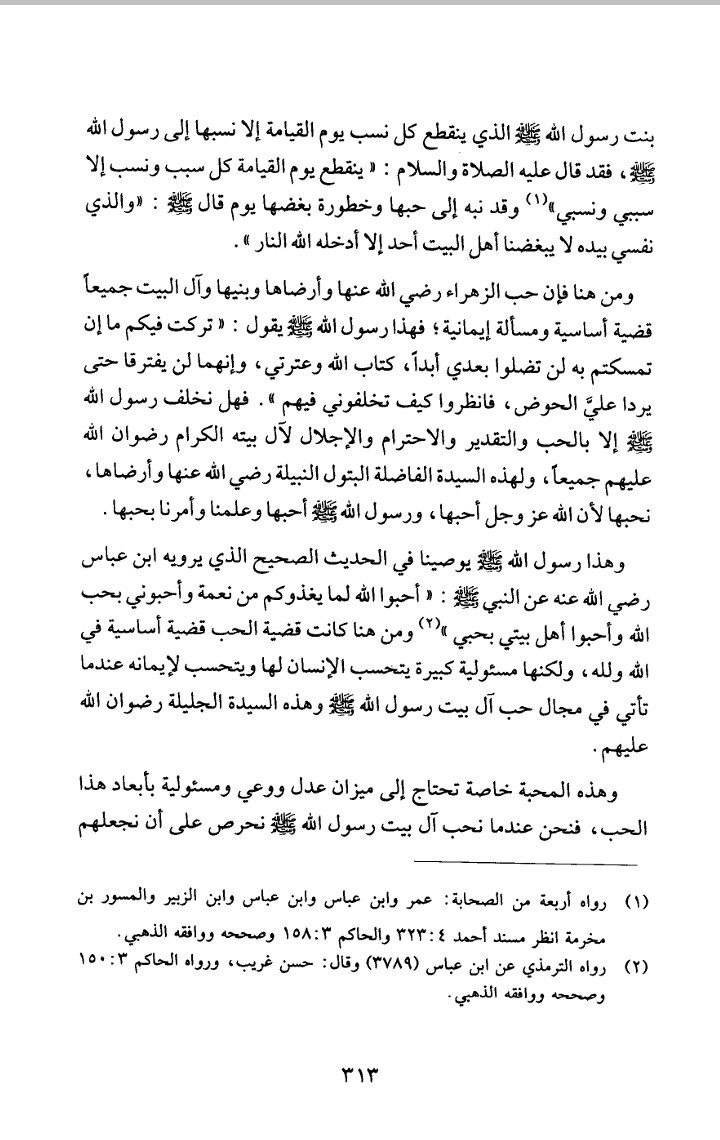 بنت رسول الله ﷺ الذي ينقطع كل نسب يوم القيامة إلا نسبها إلى رسول الله
ﷺ ، فقد قال عليه الصلاة والسلام : « ينقطع يوم القيامة كل سبب ونسب إلا
سببي ونسبي»(١) وقد نبه إلى حبها وخطورة بغضها يوم قال ﷺ : «والذي
نفسي بيده لا يبغضنا أهل البيت أحد إلا أدخله الله النار » .
ومن هنا فإن حب الزهراء رضي الله عنها وأرضاها وبنيها وآل البيت جميعاً
قضية أساسية ومسألة إيمانية ؛ فهذا رسول الله ﷺ يقول : « تركت فيكم ما إن
تمسكتم به لن تضلوا بعدي أبداً ، كتاب الله وعترتي ، وإنهما لن يفترقا حتى
يردا عليَّ الحوض ، فانظروا كيف تخلفوني فيهم » . فهل نخلف رسول الله
ﷺ إلا بالحب والتقدير والاحترام والإجلال لآل بيته الكرام رضوان الله
عليهم جميعاً ، ولهذه السيدة الفاضلة البتول النبيلة رضي الله عنها وأرضاها ،
نحبها لأن الله عز وجل أحبها ، ورسول الله ﷺ أحبها وعلمنا وأمرنا بحبها .
وهذا رسول الله ﷺ يوصينا في الحديث الصحيح الذي يرويه ابن عباس
رضي الله عنه عن النبي ﷺ : « أحبوا الله لما يغذوكم من نعمة وأحبوني بحب
الله وأحبوا أهل بيتي بحبي »(٢) ومن هنا كانت قضية الحب قضية أساسية في
الله ولله ، ولكنها مسئولية كبيرة يتحسب الإنسان لها ويتحسب لإيمانه عندما
تأتي في مجال حب آل بيت رسول الله ﷺ وهذه السيدة الجليلة رضوان الله
عليهم .
وهذه المحبة خاصة تحتاج إلى ميزان عدل ووعي ومسئولية بأبعاد هذا
الحب ، فنحن عندما نحب آل بيت رسول الله ﷺ نحرص على أن نجعلهم
(١) رواه أربعة من الصحابة: عمر وابن عباس وابن عباس وابن الزبير والمسور بن
مخرمة انظر مسند أحمد ٤ :٣٢٣ والحاكم ٣ :١٥٨ وصححه ووافقه الذهبي.
(٢) رواه الترمذي عن ابن عباس (٣٧٨٩) وقال: حسن غريب، ورواه الحاكم ٣ :١٥٠
وصححه ووافقه الذهبي.
٣١٣